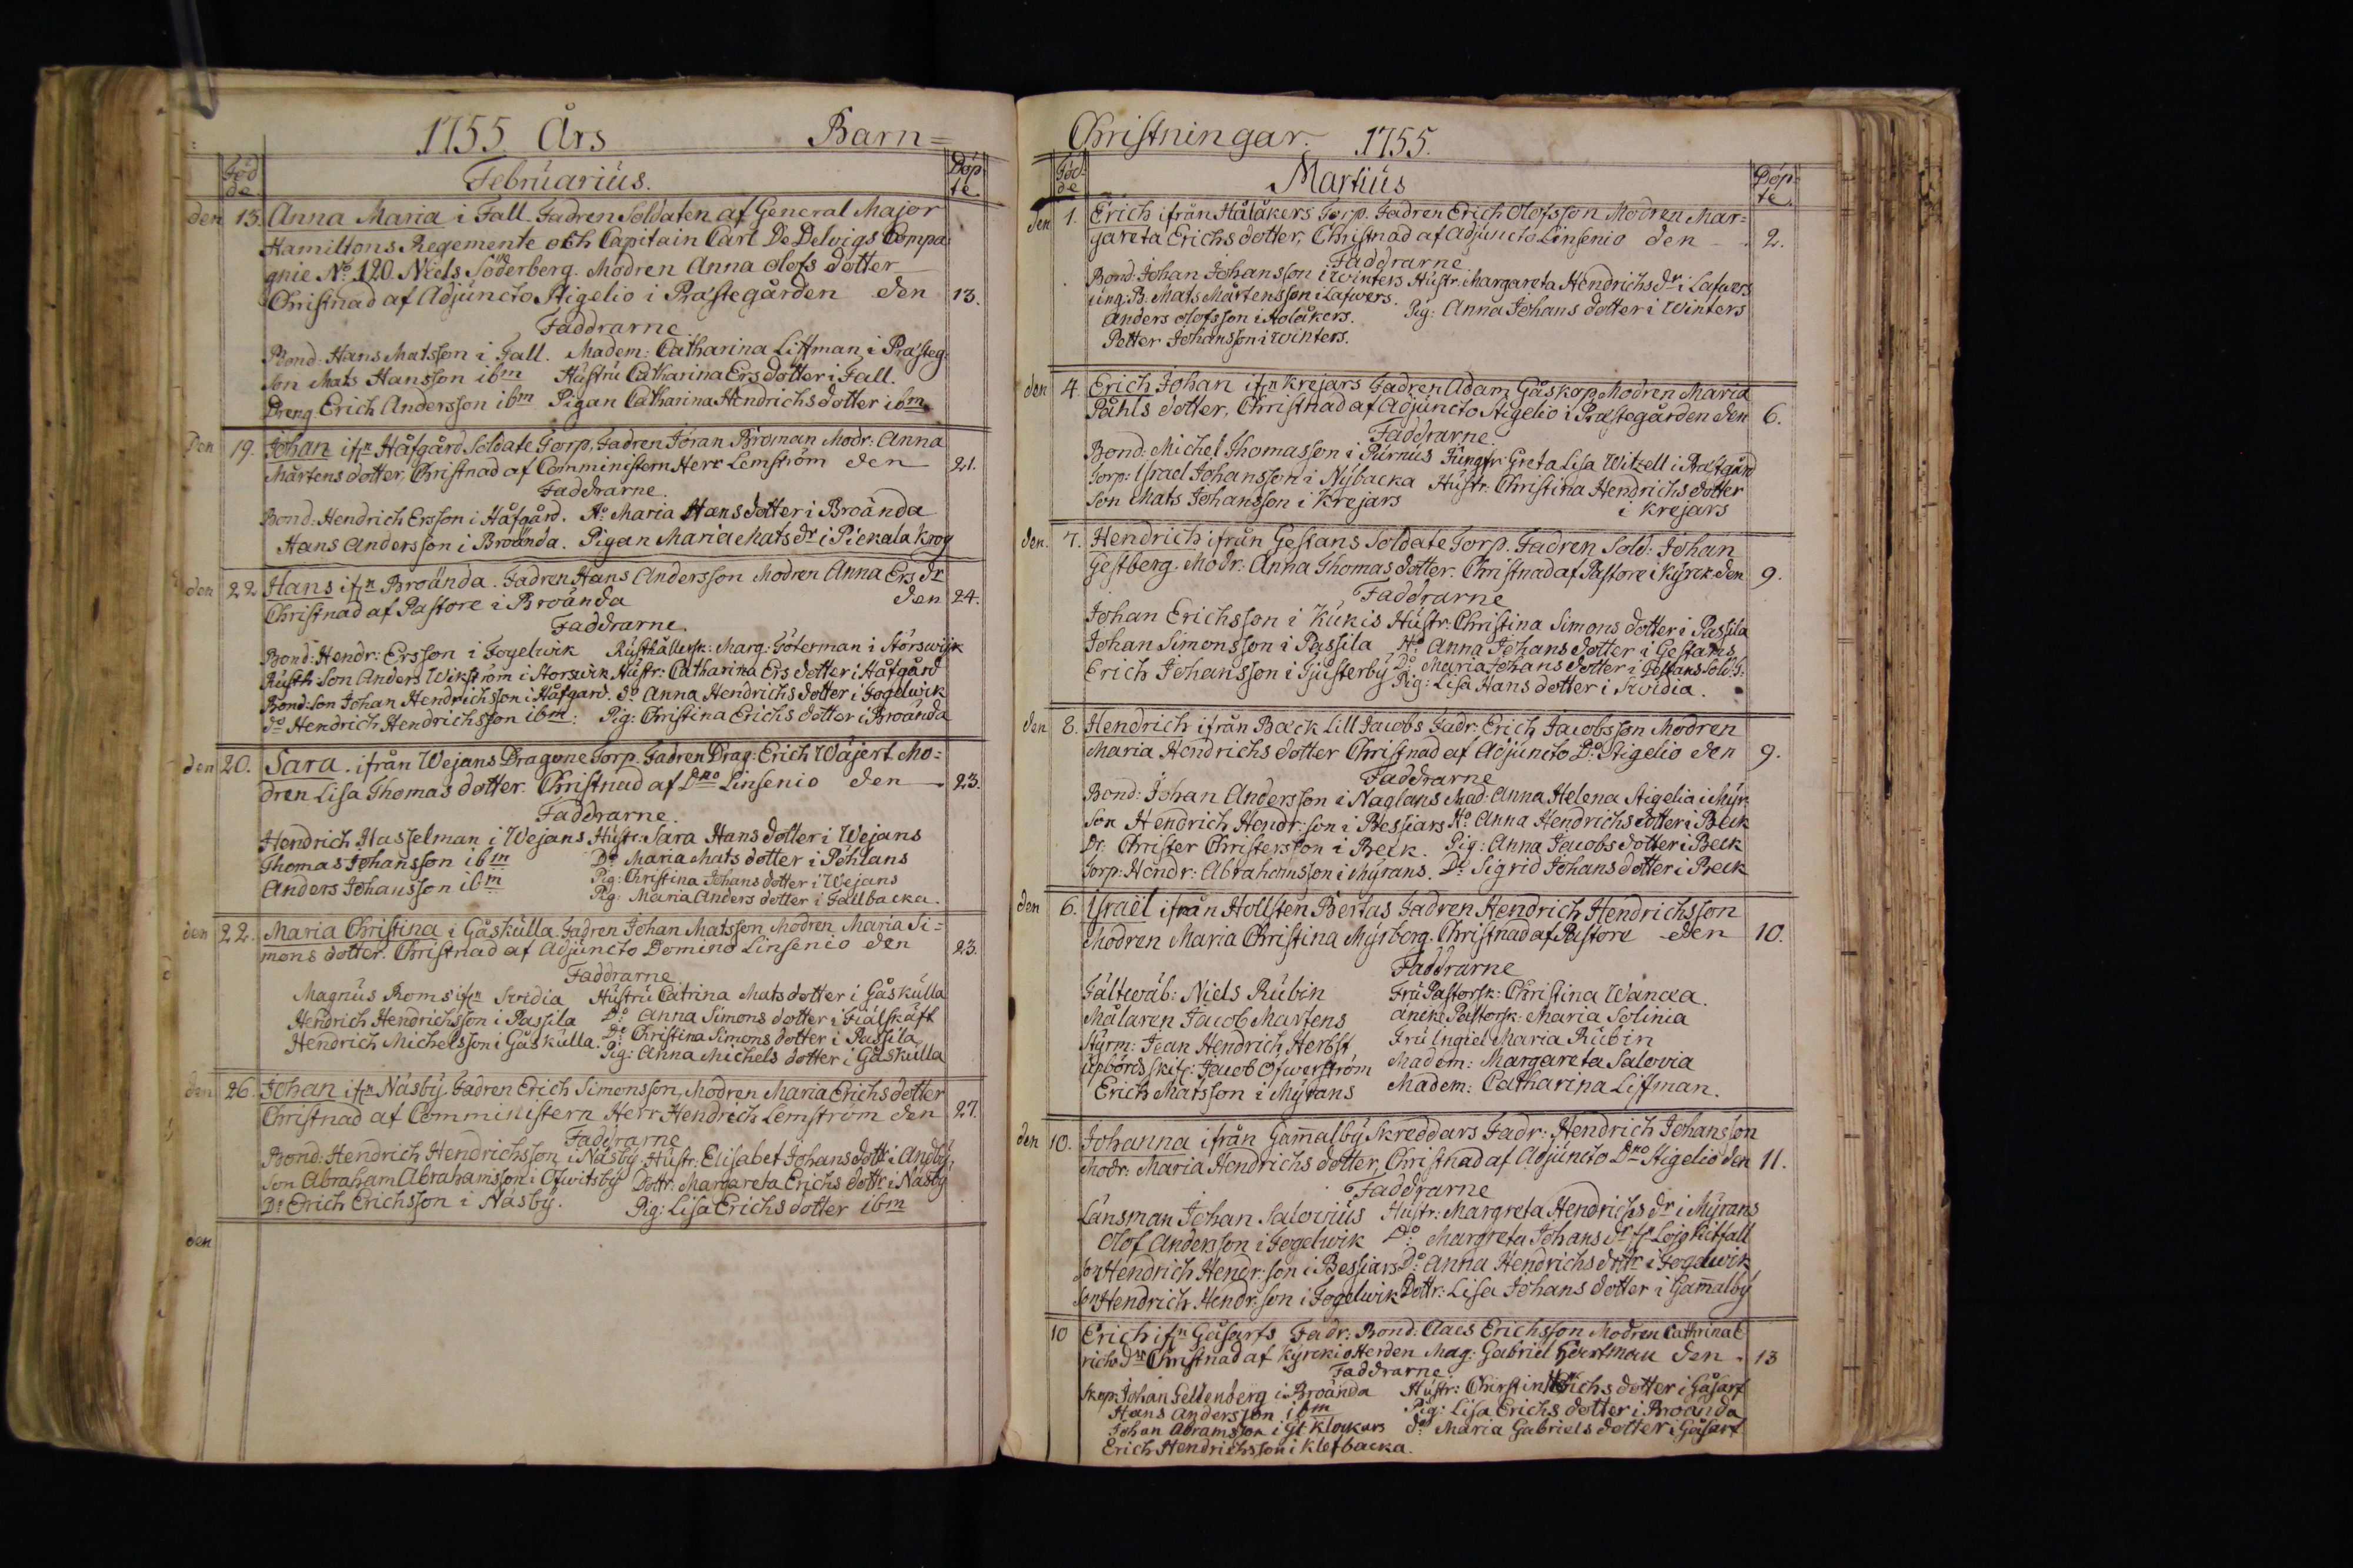 1755 Års Barn=
Föd
de
Februarius.
Döp
te
den 13. Anna Maria i Fall. Fadren Soldaten af General Major
Hamiltons Regemente och Capitain Carl De Delvigs Compa
gnie No. 120. Niels Söderberg. Modren Anna Olofs dotter
Christnad af Adjuncto Stigelio i Prästegården den 13.
Faddrarne
Bond: Hans Matsson i Fall. Madem: Catharina Liffman i Prästeg:
Son Mats Hansson ibm Hustru Catharina Ers dotter i Fall.
Dreng Erich Andersson ibm Pigan Catharina Hendrichs dotter ibm
Den 19. Johan ifrn Håfgård Soldate Torp, Fadren Jöran Broman Modr: Anna
Mårtens dotter, Christnad af Comministern Herr Lemström den 21.
Faddrarne.
Bond: Hendrich Ersson i Håfgård. Ho Maria Hans dotter i Broända
Hans Andersson i Broända. Pigan Maria Mats dr i Pickala krog
den 22 Hans ifrn Broända. Fadren Hans Andersson Modren Anna Ers dr
Christnad af Pastore i Broända den 24.
Faddrarne.
Bond: Hendr: Ersson i Fogelwik Rusthållersk: Marg: Göterman i Störswijk
Rusth: Son Anders Wikström i Storswik Hustr: Catharina Ers dotter i Håfgård
Bond: Son Johan Hendrichsson i Håfgard. do Anna Hendrichs dotter i Fogelwik
do Hendrich Hendrichsson ibm: Pig: Christina Erichs dotter i Broända
den 20. Sara. ifrån Wejans Dragone Torp. Fadren Drag: Erich Wäjert Mo=
dren Lisa Thomas dotter. Christnad af Dno Linsenio den 23.
Faddrarne.
Hendrich Hasselman i Wejans Hustr: Sara Hans dotter i Wejans
Thomas Johansson ibm Do Maria Mats dotter i Pöhlans
Anders Johansson ibm Pig: Christina Johans dotter i Wejans
Pig: Maria Anders dotter i Fallbacka.
den 22. Maria Christina i Gåskulla. Fadren Johan Matsson Modren Maria Si=
mons dotter. Christnad af Adjuncto Domino Linsenio den 23.
Faddrarne
Magnus Roms ifrn Svidia Hustru Catrina Mats dotter i Gåskulla
Hendrich Hendrichsson i Passila Do Anna Simons dotter i Fiälskäft
Hendrich Michelsson i Gåskulla. Do Christina Simons dotter i Passila
Pig: Anna Michels dotter i Gåskulla
den 26. Johan ifrn Näsby. Fadren Erich Simonsson, Modren Maria Erichs dotter
Christnad af Comministern Herr Hendrich Lemström den 27.
Faddrarne
Bond: Hendrich Hendrichsson i Näsby Hustr: Elisabet Johans dottr i Andby,
Son Abraham Abrahamsson i Ofwitsby Dottr: Margareta Erichs dottr i Näsby
Do Erich Erichsson i Näsby. Pig: Lisa Erichs dotter ibm
den
Christningar. 1755.
Föd:
de
Martius
Döp:
te.
den 1. Erich ifrån Hålåkers Torp. Fadren Erich Olofsson Modren Mar=
gareta Erichs dotter, Christnad af Adjuncto Linsenio den 2.
Faddrarne
Bond: Johan Johansson i Winters Hustr: Margareta Hendrichs dr i Lafwers
ung: B. Mats Mårtensson i Lafwers. Pig: Anna Johans dotter i Winters
Anders Olofsson i Holåkers.
Petter Johansson i Winters.
den 4. Erich Johan ifrn Krejars Fadren Adam Gåskop, Modren Maria
Påhls dotter, Christnad af Adjuncto Stigelio i Prästegården den 6.
Faddrarne.
Bond: Michel Thomasson i Purnus Jungfr: Greta Lisa Witzell i Prästgård
Torp: Israel Johansson i Nybacka Hustr: Christina Hendrichs dotter
Son Mats Johansson i Krejars i Krejars
den. 7. Hendrich ifrån Gestans Soldate Torp. Fadren Sold: Johan
Gestberg. Modr: Anna Thomas dotter. Christnad af Pastore i Kyrck: den 9.
Faddrarne
Johan Erichsson i Kukis Hustr: Christina Simons dotter i Passila
Johan Simonsson i Passila Ho Anna Johans dotter i Gestans
Erich Johansson i Gjusterby Do Maria Johans dotter i Gestans Sold: T:
Pig: Lisa Hans dotter i Svidia.
den 8. Hendrich ifrån Bäck Lill Jacobs Fadr: Erich Jacobsson Modren
Maria Hendrichs dotter Christnad af Adjuncto Do Stigelio den 9.
Faddrarne
Bond: Johan Andersson i Naglans Mad: Anna Helena Stigelia i Myr
Son Hendrich Hendr: son i Bessiars Ho Anna Hendrichs dotter i Beck
Dr: Christer Christersson i Beck. Pig: Anna Jacobs dotter i Beck
Torp: Hendr: Abrahamsson i Myrans. Do Sigrid Johans dotter i Beck
den 6. Israël ifrån Hollsten Bertas Fadren Hendrich Hendrichsson
Modren Maria Christina Myrberg. Christnad af Pastore den 10.
Faddrarne
Fältwäb: Niels Rubin Fru Pastorsk: Christina Wancka.
Målaren Jacob Martens änck: Pastorsk: Maria Solinia
Styrm: Jean Hendrich Herbst Fru Ingiel Maria Rubin
upbördsskrif: Jacob Ofwerström Madem: Margareta Salovia
Erich Matsson i Myrans Madem: Catharina Liffman.
den 10. Johanna ifrån Gammalby Skreddars Fadr: Hendrich Johansson
Modr: Maria Hendrichs dotter, Christnad af Adjuncto Dno Stigelio den 11.
Faddrarne
Länsman Johan Salovius Hustr: Margreta Hendrichs dr i Myrans
Olof Andersson i Fogelwik Do Margreta Johans dr
Son Hendrich Hendr: son i Bessiars Do Anna Hendrichs dottr i Fogelwik
Son Hendrich Hendr: son i Fogelwik Dottr: Lisa Johans dotter i Gammalby
10 Erich ifrn Gåsarfs Fadr: Bond: Claes Erichsson Modren Cathrina E
richs dr Christnad af Kyrckioherden Mag: Gabriel Hartman den 13
Faddrarne
Skep: Johan Gellenberg i Broända Hustr: Christin Erichs dotter i Gåsarf
Hans Andersson ibm Pig: Lisa Erichs dotter i Broända
Johan Abramsson i Gl Klockars do Maria Gabriels dotter i Gåsarf
Erich Hendrichsson i Klefbacka.